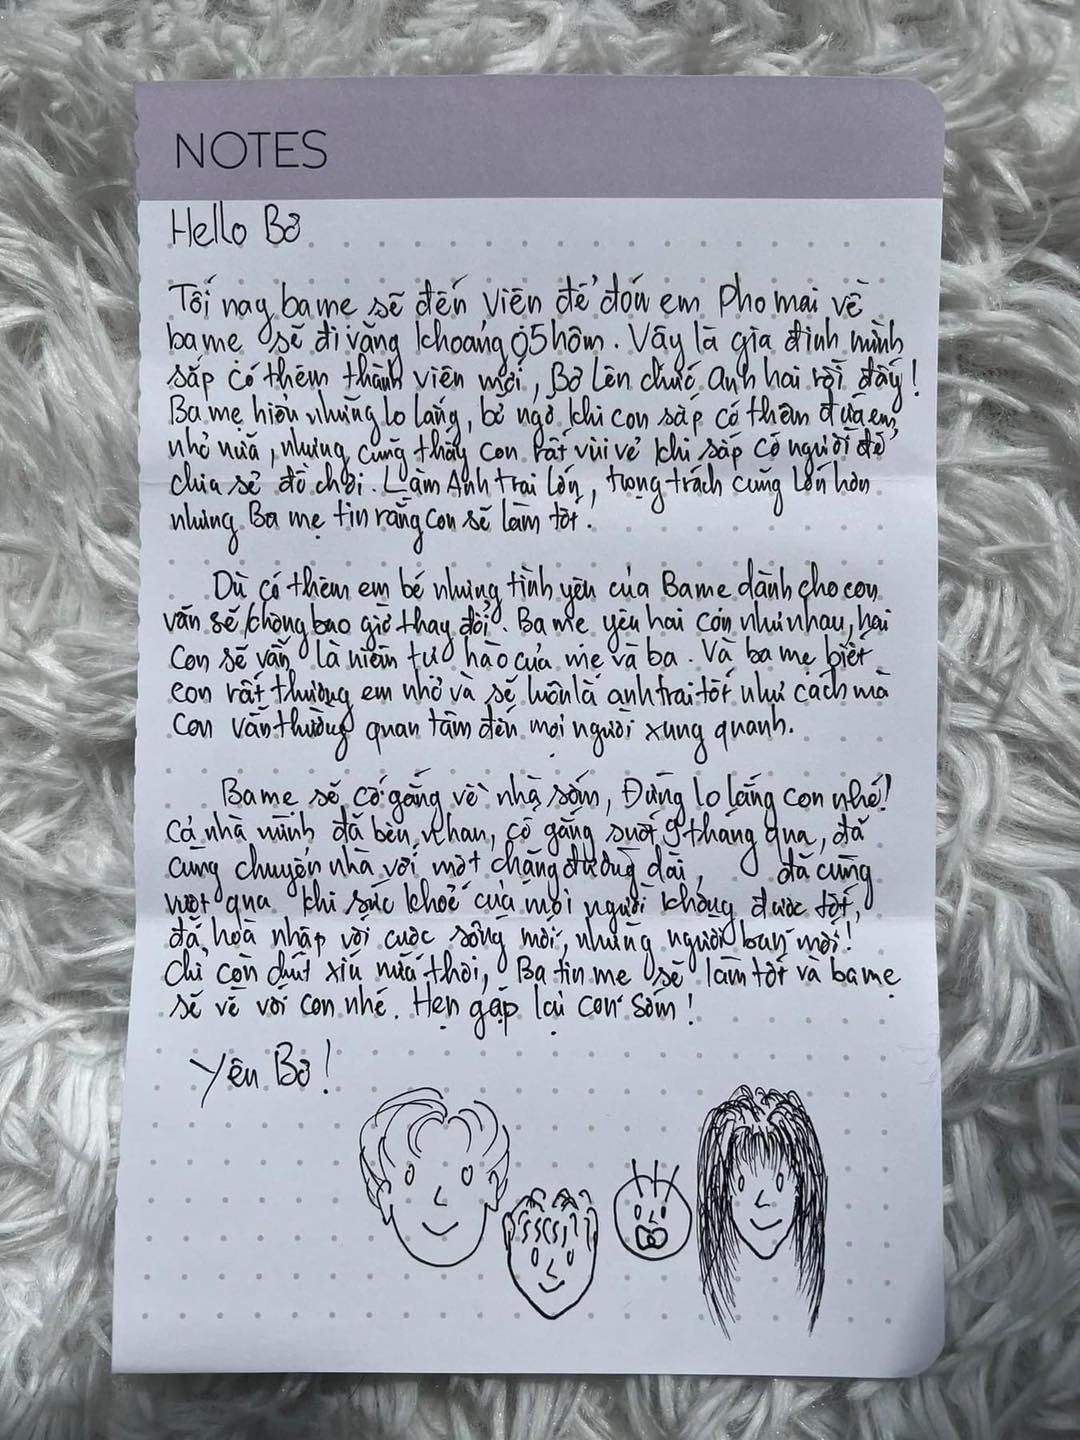 NOTES
Hello Bơ
Tối nay ba mẹ sẽ đến viện để đón em Pho mai về
ba mẹ sẽ đi vắng khoảng 05 hôm. Vậy là gia đình mình
sắp có thêm thành viên mới, Bơ lên chức anh hai rồi đấy!
Ba mẹ hiểu những lo lắng, bỡ ngỡ khi con sắp có thêm đứa em
nhỏ nữa, nhưng cũng thấy con rất vui vẻ khi sắp có người để
chia sẻ đồ chơi. Làm Anh trai lớn, trọng trách cũng lớn hơn
nhưng Ba mẹ tin rằng con sẽ làm tốt.
Dù có thêm em bé nhưng tình yêu của Ba mẹ dành cho con
vẫn sẽ không bao giờ thay đổi. Ba mẹ yêu hai con như nhau, hai
con sẽ vẫn là niềm tự hào của mẹ và ba. Và ba mẹ biết
con rất thương em nhỏ và sẽ luôn là anh trai tốt như cách mà
con vẫn thường quan tâm đến mọi người xung quanh.
Ba mẹ sẽ cố gắng về nhà sớm, Đừng lo lắng con nhé!
Cả nhà mình đã bên nhau, cố gắng suốt 9 tháng qua, đã
cùng chuyển nhà với một chặng đường dài, đã cùng
vượt qua khi sức khoẻ của mọi người không được tốt,
đã hoà nhập với cuộc sống mới, những người bạn mới!
Chỉ còn chút xíu nữa thôi, Ba tin mẹ sẽ làm tốt và ba mẹ
sẽ về với con nhé. Hẹn gặp lại con sớm!
Yêu Bơ!